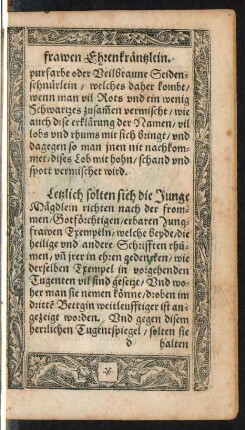 frawen Ehrenkräntzlein.
purfarbe oder Veilbraune Seiden-
schnürlein / welches daher kombt/
wenn man vil Rots vnd ein wenig
Schwartzes zusam̃en vermischt / wie
auch dise erklärung der Namen / vil
lobs vnd rhums mit sich bringt / vnd
dagegen so man jnen nit nachkom-
met / dises Lob mit hohn / schand vnd
spott vermischet wird.
Letzlich solten sich die Junge
Mägdlein richten nach der from-
men / Gotförchtigen / erbaren Jung-
frawen Exempeln / welche beyde / die
heilige vnd andere Schrifften rhü-
men / vñ jrer in ehren gedencken / wie
derselben Exempel in vorgehenden
Tugenten vil sind gesetzt / Vnd wo-
her man sie nemen könne / droben im
drittẽ Bettgin weitleufftiger ist an-
gezeigt worden. Vnd gegen disem
herrlichen Tugentspiegel / solten sie
d halten